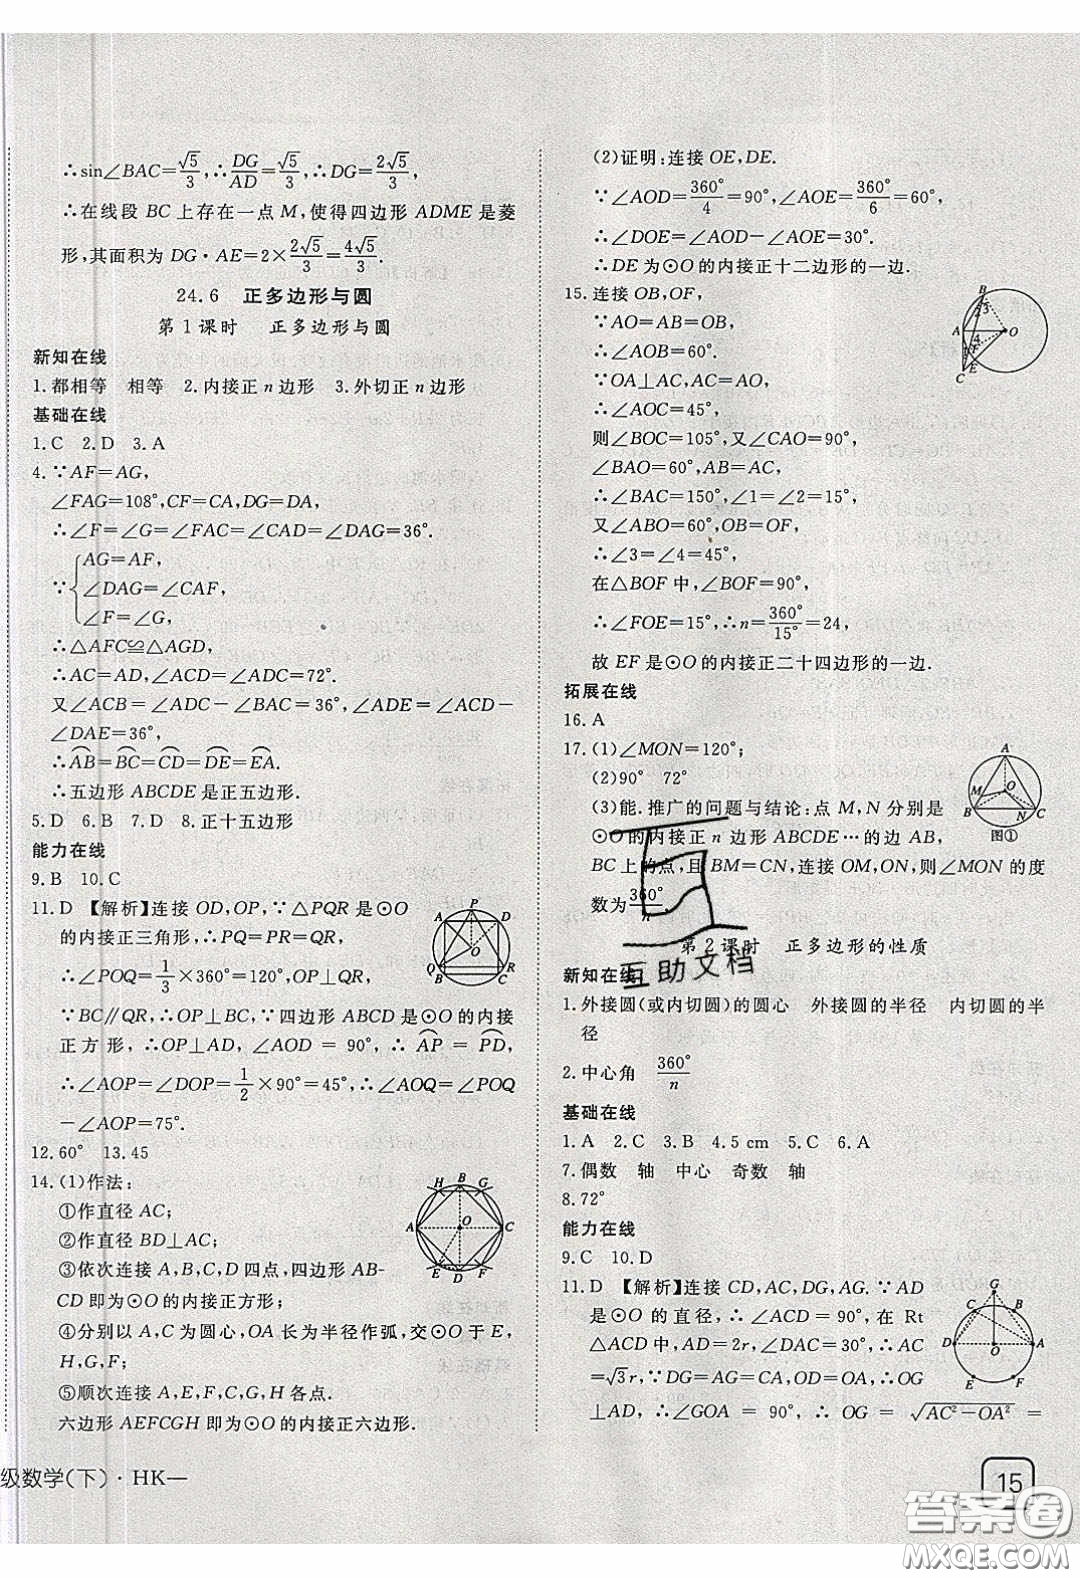 ∴sin∠BAC=√5/3,∴DG/AD=√5/3,∴DG=2√5/3,
∴在线段 BC 上存在一点 M,使得四边形 ADME 是菱
形,其面积为 DG·AE=2×2√5/3=4√5/3.
24.6 正多边形与圆
第1课时 正多边形与圆
新知在线
1.都相等 相等 2.内接正 n 边形 3.外切正 n 边形
基础在线
1.C 2.D 3.A
4.∵AF=AG,
∠FAG=108°,CF=CA,DG=DA,
∴∠F=∠G=∠FAC=∠CAD=∠DAG=36°.
∵{AG=AF,
∠DAG=∠CAF,
∠F=∠G,
∴△AFC≌△AGD,
∴AC=AD,∠ACD=∠ADC=72°.
又∠ACB=∠ADC−∠BAC=36°,∠ADE=∠ADC−
∠DAE=36°,
∴AB⌒=BC⌒=CD⌒=DE⌒=EA⌒.
∴五边形 ABCDE 是正五边形.
5.D 6.B 7.D 8.正十五边形
能力在线
9.B 10.C
11.D 【解析】连接 OD,OP,∵△PQR 是⊙O
的内接正三角形,∴PQ=PR=QR,
∴∠POQ=1/3×360°=120°,∵BC∥QR,
∵BC∥QR,∴OP⊥BC,∵四边形 ABCD 是⊙O 的内接
正方形,∴OP⊥AD,∠AOD=90°,∴AP⌒=PD⌒,
∴∠AOP=∠DOP=1/2×90°=45°,∴∠AOQ=∠POQ
−∠AOP=75°.
12.60° 13.45
14.(1)作法:
①作直径 AC;
②作直径 BD⊥AC;
③依次连接 A,B,C,D 四点,四边形 AB-
CD 即为⊙O 的内接正方形;
④分别以 A,C 为圆心,OA 长为半径作弧,交⊙O 于 E,
H,G,F;
⑤顺次连接 A,E,F,C,G,H 各点.
六边形 AEFCGH 即为⊙O 的内接正六边形.
级数学(下)·HK—
(2)证明:连接 OE,DE.
∵∠AOD=360°/4=90°,∠AOE=360°/6=60°,
∴∠DOE=∠AOD−∠AOE=30°.
∴DE 为⊙O 的内接正十二边形的一边.
15.连接 OB,OF,
∵AO=AB=OB,
∴∠AOB=60°.
∵OA⊥AC,OA=AC,
∴∠AOC=45°,
则∠BOC=105°,又∠CAO=90°,
∠BAO=60°,AB=AC,
∴∠BAC=150°,∠1=∠2=15°,
又∠ABO=60°,OB=OF,
∴∠3=∠4=45°,
在△BOF 中,∠BOF=90°,
∴∠FOE=15°,∴n=360°/15°=24,
故 EF 是⊙O 的内接正二十四边形的一边.
拓展在线
16.A
17.(1)∠MON=120°;
(2)90° 72°
(3)能.推广的问题与结论:点 M,N 分别是
⊙O 的内接正 n 边形 ABCDE…的边 AB,
图①
BC 上的点,且 BM=CN,连接 OM,ON,则∠MON 的度
数为360°/n.
第2课时 正多边形的性质
新知在线
1.外接圆(或内切圆)的圆心 外接圆的半径 内切圆的半
径
2.中心角 360°/n
基础在线
1.A 2.C 3.B 4.5 cm 5.C 6.A
7.偶数 轴 中心 奇数 轴
8.72°
能力在线
9.C 10.D
11.D 【解析】连接 CD,AC,DG,AG.∵AD
是⊙O 的直径,∴∠ACD=90°,在 Rt
△ACD 中,AD=2r,∠DAC=30°,∴AC
=√3r,∵DG=AG=CA,OD=OA,∴OG
⊥AD,∴∠GOA=90°,∴OG=√(AC²−OA²)=
15
互助文档
答案圈
MXQE.COM